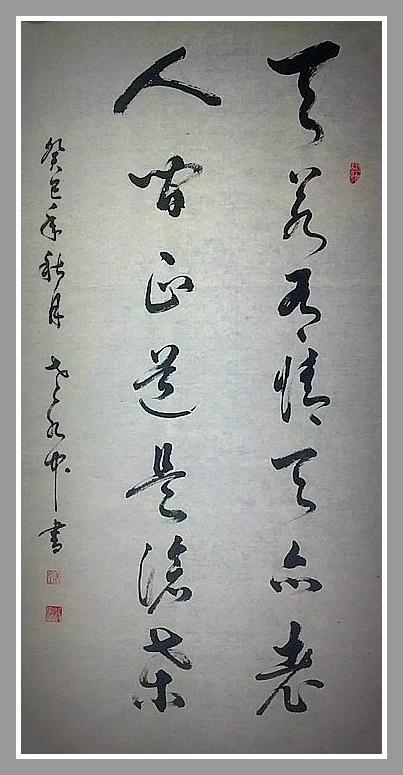 天若有情天亦老
人間正道是滄桑
癸巳年秋月 書